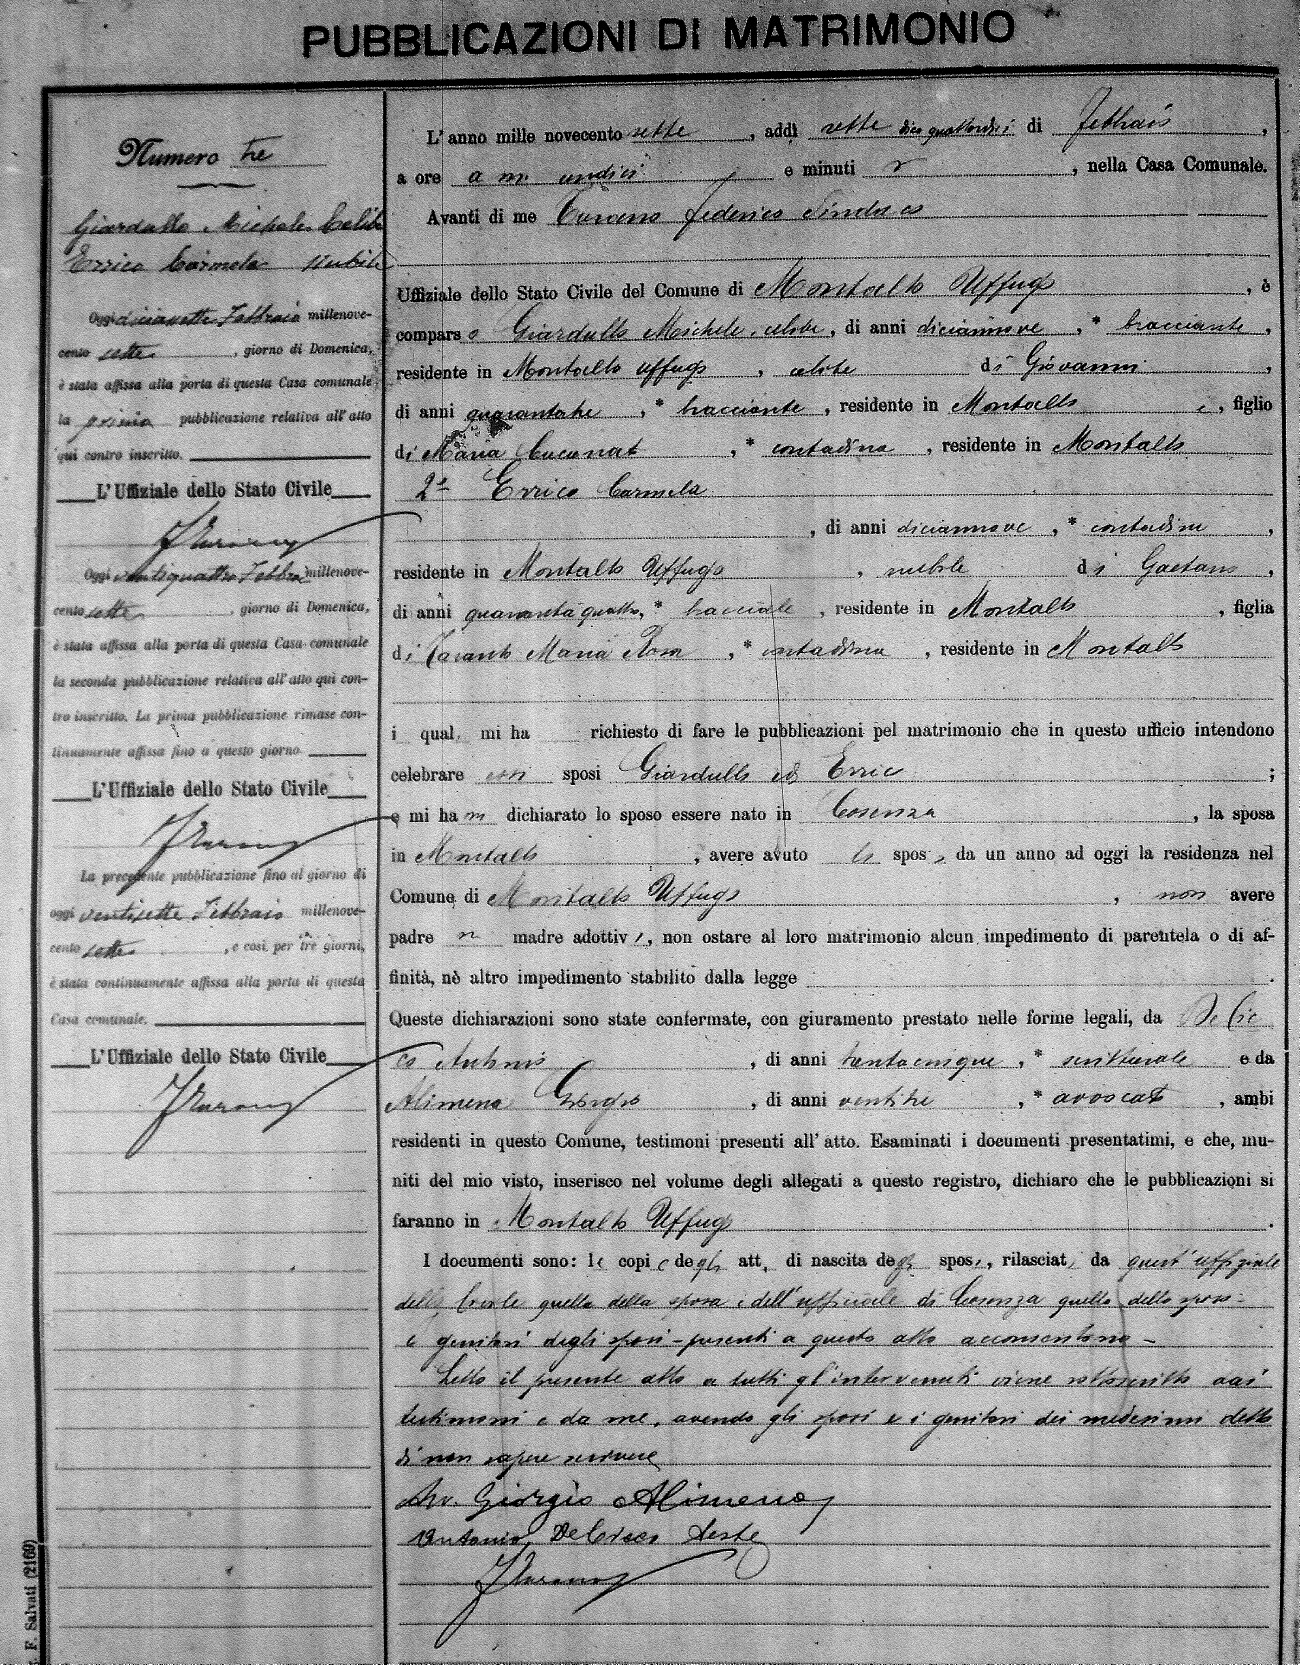 PUBBLICAZIONI DI MATRIMONIO
Numero tre
Giardullo Michele Celibe
Errico Carmela nubile
Oggi diciasette Febbraio millenove-
cento sette, giorno di Domenica,
è stata affissa alla porta di questa Casa comunale
la prima pubblicazione relativa all'atto
qui contro inscritto.
L'Uffiziale dello Stato Civile
Oggi ventiquattro Febbraio millenove-
cento sette, giorno di Domenica,
è stata affissa alla porta di questa Casa comunale
la seconda pubblicazione relativa all'atto qui con-
tro inscritto. La prima pubblicazione rimase con-
tinuamente affissa fino a questo giorno.
L'Uffiziale dello Stato Civile
La precedente pubblicazione fino al giorno di
oggi ventisette Febbraio millenove-
cento sette, e così per tre giorni,
è stata continuamente affissa alla porta di questa
Casa comunale.
L'Uffiziale dello Stato Civile
L'anno mille novecento sette, addì sette dico quattordici di Febbraio,
a ore a m undici e minuti, nella Casa Comunale.
Avanti di me Federico Sindaco
Uffiziale dello Stato Civile del Comune di Montalto Uffugo, è
comparso Giardullo Michele, celibe, di anni diciannove, * bracciante,
residente in Montalto Uffugo, celibe di Giovanni,
di anni quarantatre, * bracciante, residente in Montalto e, figlio
di Maria, * contadina, residente in Montalto
2° Errico Carmela
, di anni diciannove, * contadina,
residente in Montalto Uffugo, nubile di Gaetano,
di anni quarantaquattro, * bracciale, residente in Montalto, figlia
di Maria Rosa, * contadina, residente in Montalto
i qual mi ha richiesto di fare le pubblicazioni pel matrimonio che in questo ufficio intendono
celebrare essi sposi Giardullo ed Errico;
e mi han dichiarato lo sposo essere nato in Cosenza, la sposa
in Montalto, avere avuto li sposi, da un anno ad oggi la residenza nel
Comune di Montalto Uffugo, non avere
padre n madre adottivi, non ostare al loro matrimonio alcun impedimento di parentela o di af-
finità, nè altro impedimento stabilito dalla legge.
Queste dichiarazioni sono state confermate, con giuramento prestato nelle forme legali, da De Cic
co Antonio, di anni trentacinque, * scritturale e da
Alimena Giorgio, di anni ventitre, * avvocato, ambi
residenti in questo Comune, testimoni presenti all'atto. Esaminati i documenti presentatimi, e che, mu-
niti del mio visto, inserisco nel volume degli allegati a questo registro, dichiaro che le pubblicazioni si
faranno in Montalto Uffugo.
I documenti sono: le copie degli atti di nascita degli sposi, rilasciat da quest'uffiziale
quella della sposa e dell'ufficiale di Cosenza quello dello sposo -
i genitori degli sposi - presenti a questo atto acconsentono -
Letto il presente atto a tutti gl'intervenuti viene sottoscritto dai
testimoni e da me, avendo gli sposi e i genitori dei medesimi detto
di non sapere scrivere
Avv. Giorgio Alimena
Antonio De Cicco teste
F. Salvati (2169)